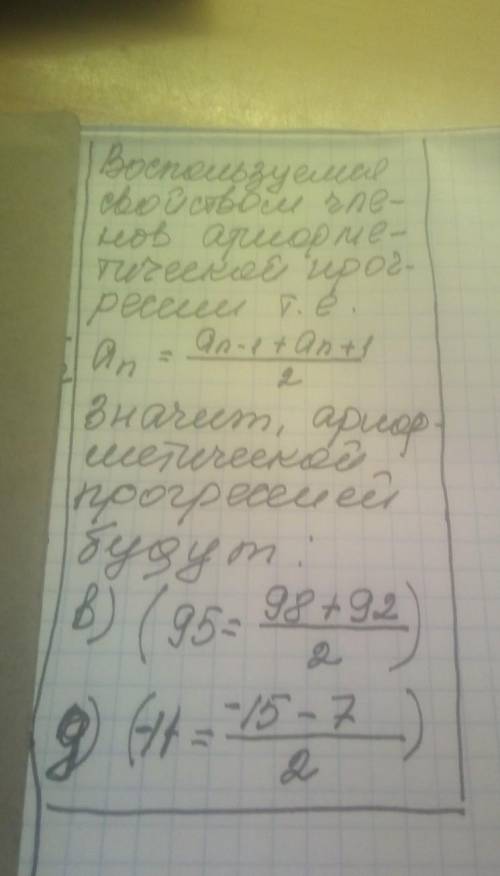 Воспользуемся
свойством чле-
нов ариорме-
тической прог-
рессии т.е.
an = an-1 + an+1 / 2
Значит, ариор-
метической
прогрессией
будут:
в) (95 = 98+92 / 2)
д) (-11 = -15-7 / 2)